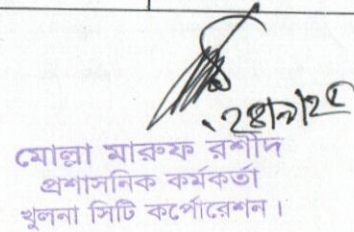 ২৪/৯/২৫
মোল্লা মারুফ রশীদ
প্রশাসনিক কর্মকর্তা
খুলনা সিটি কর্পোরেশন।